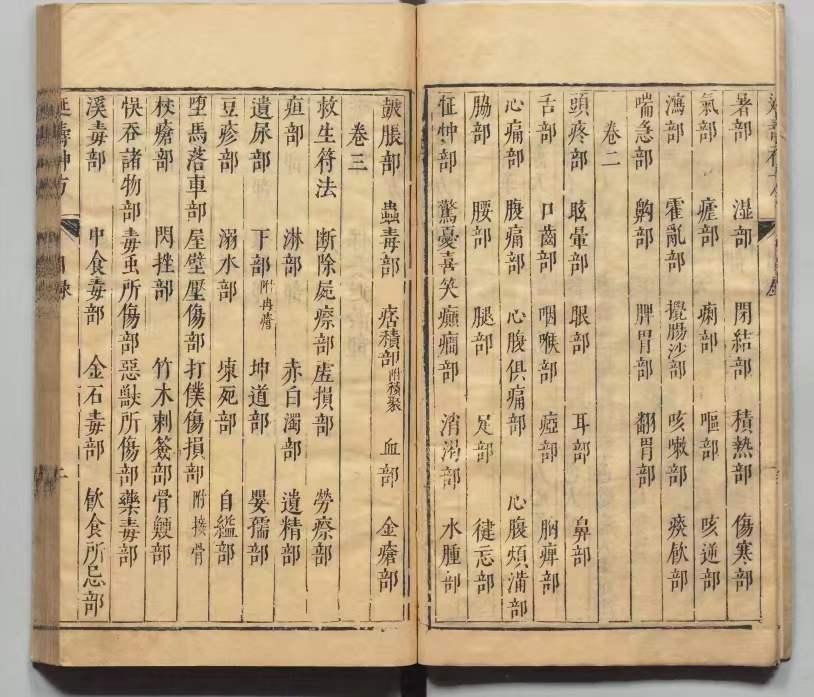 暑部 濕部 閉結部 積熱部 傷寒部
氣部 瘧部 痢部 嘔部 咳逆部
瀉部 霍亂部 攪腸沙部 咳嗽部 痰飲部
喘急部 齁部 脾胃部 翻胃部
卷二
頭疼部 眩暈部 眼部 耳部 鼻部
舌部 口齒部 咽喉部 瘂部 胸痺部
心痛部 腹痛部 心腹俱痛部 心腹煩滿部
脇部 腰部 腿部 足部 健忘部
怔忡部 驚憂喜笑癲癎部 消渴部 水腫部
皷脹部 蟲毒部 痞積部附積聚 血部 金瘡部
卷三
救生符法 断除屍瘵部 虛損部 勞瘵部
疸部 淋部 赤白濁部 遺精部
遺尿部 下部 坤道部 嬰孺部
豆疹部 溺水部 凍死部 自縊部
墮馬落車部 屋壁壓傷部 打僕傷損部附接骨
杖瘡部 閃挫部 竹木刺簽部 骨鯁部
快吞諸物部 毒虫所傷部 惡獸所傷部 藥毒部
溪毒部 中食毒部 金石毒部 飲食所忌部
延壽神方